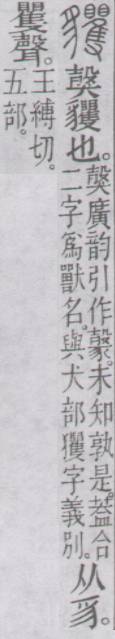 貜
㺉貜也。
㺉廣韵引作豰。未知孰是。葢合
二字爲獸名。與犬部玃字義別。
从豸。
矍聲。
王縛切。
五部。